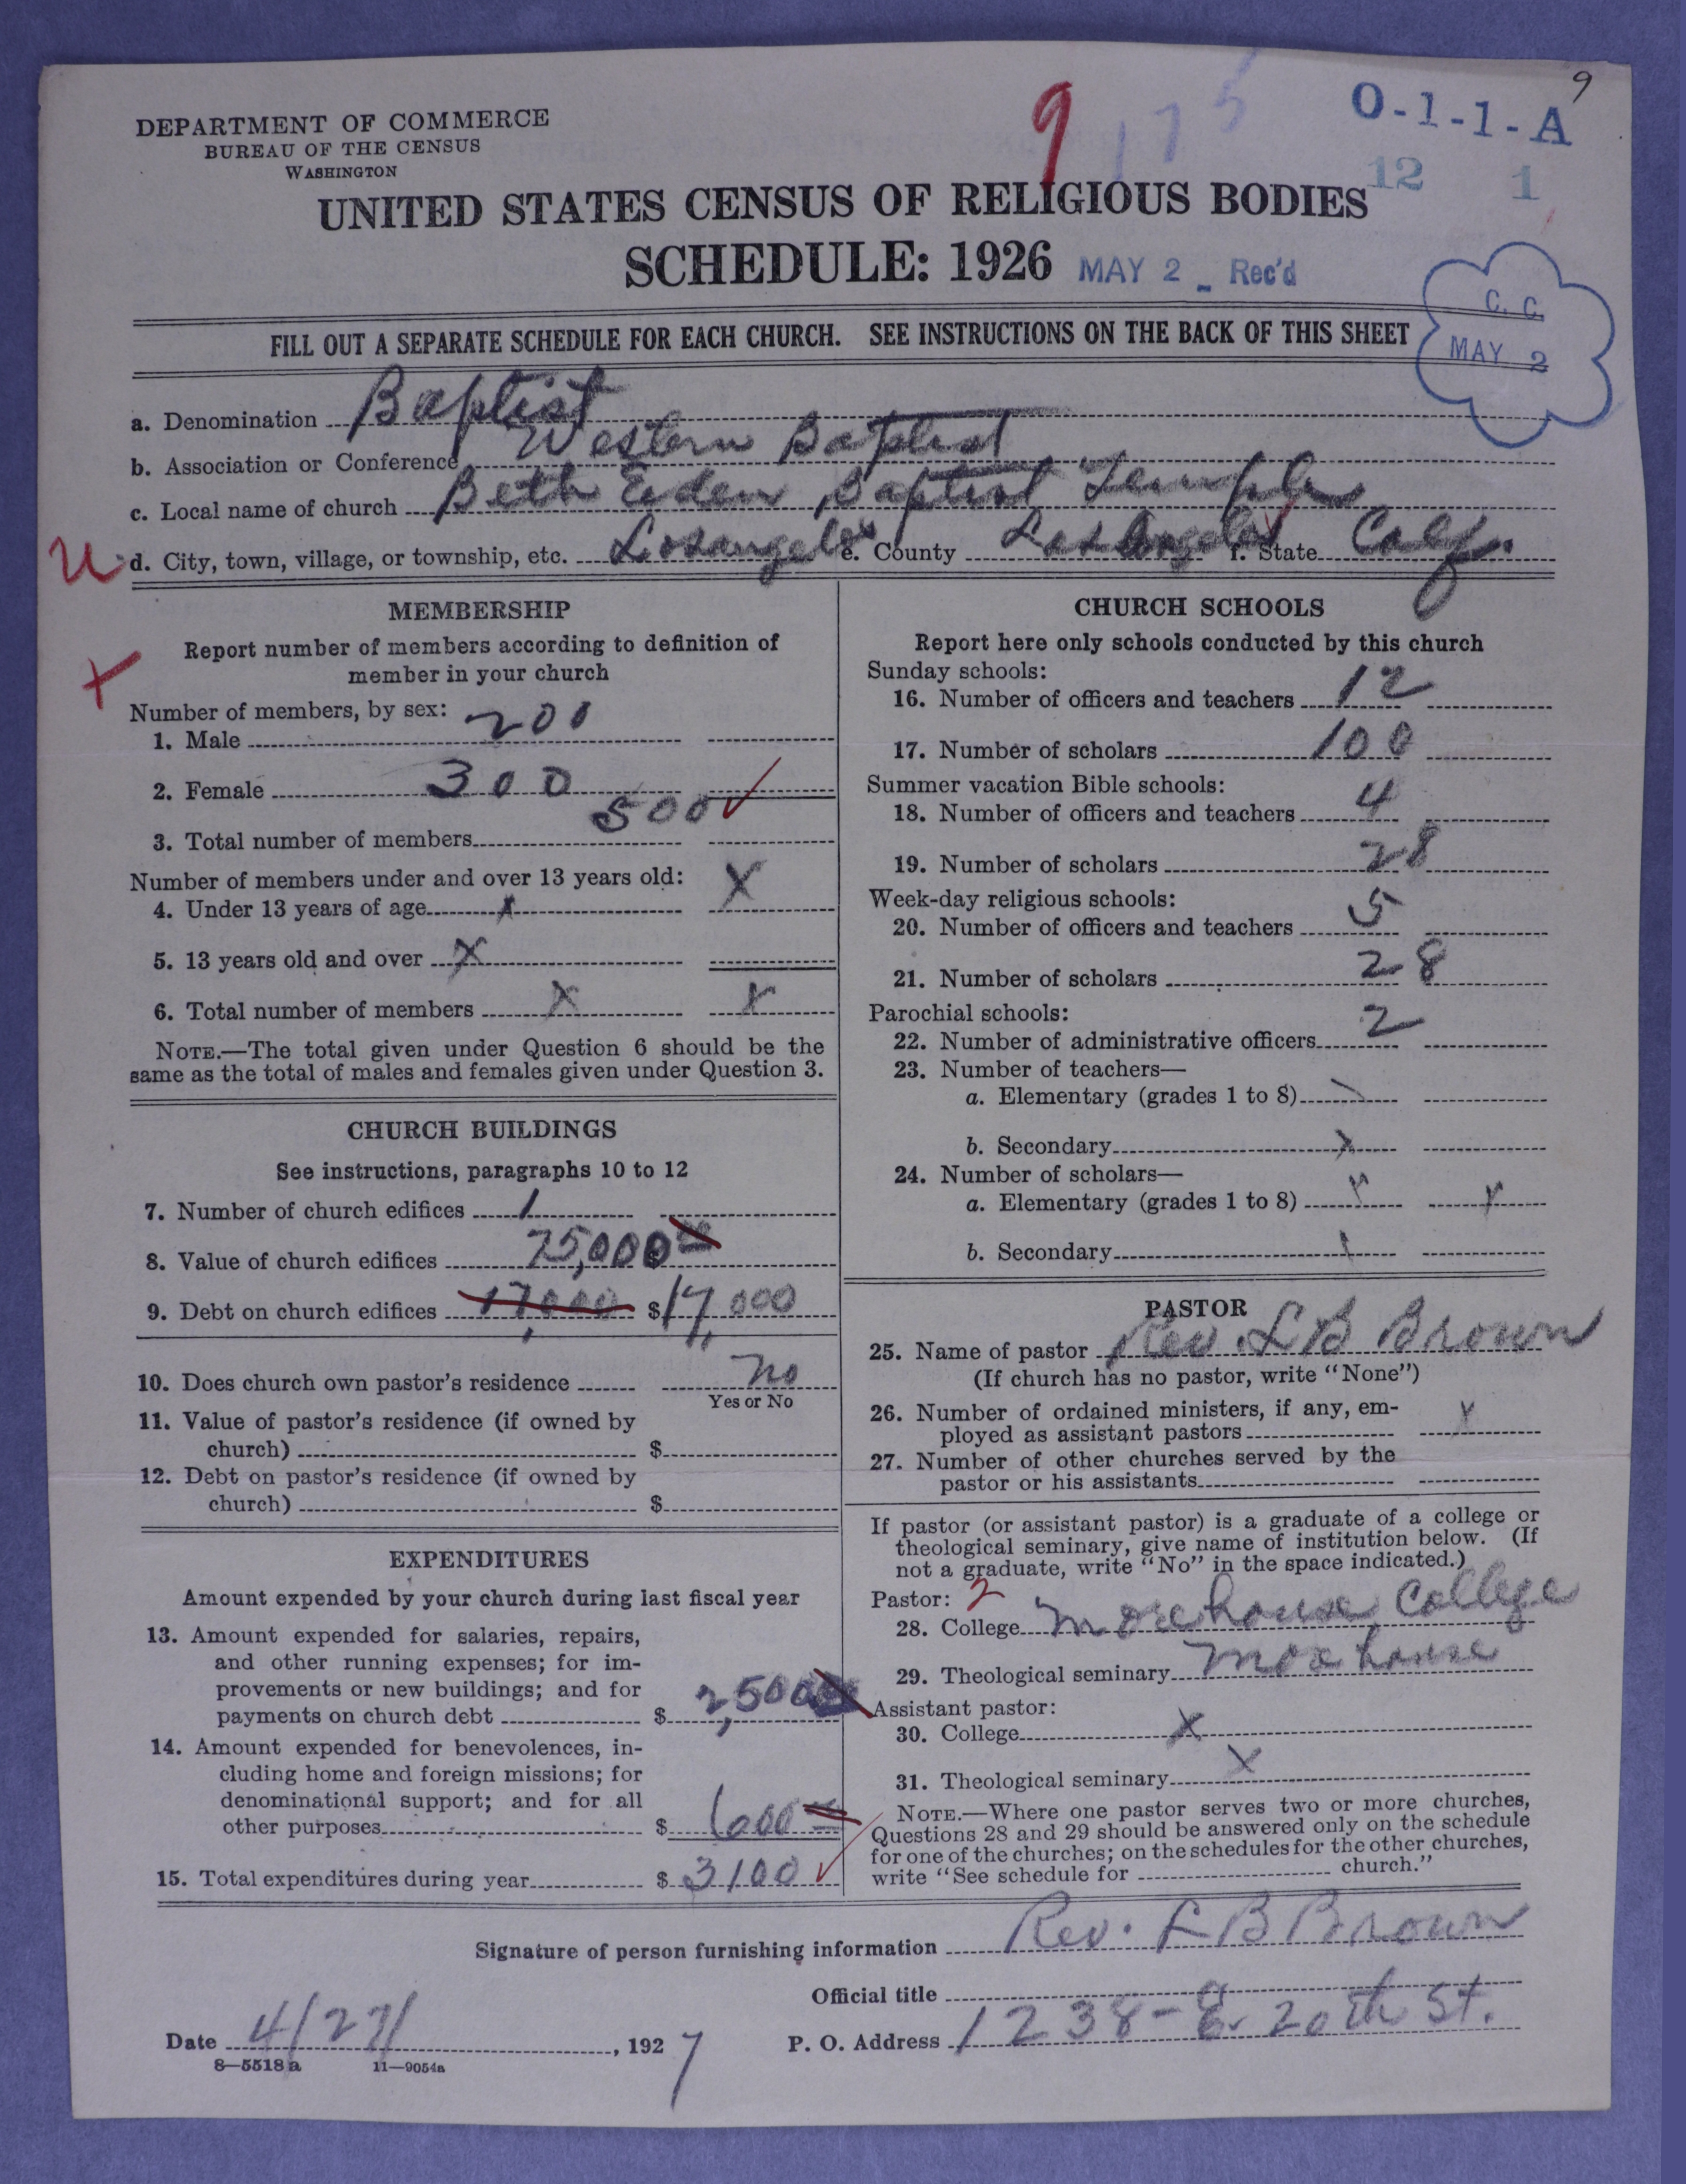 9
9 175 O-1-1-A
DEPARTMENT OF COMMERCE
BUREAU OF THE CENSUS
WASHINGTON
12 1
UNITED STATES CENSUS OF RELIGIOUS BODIES
SCHEDULE: 1926 MAY 2 _ Rec'd
C. C.
MAY 2
FILL OUT A SEPARATE SCHEDULE FOR EACH CHURCH. SEE INSTRUCTIONS ON THE BACK OF THIS SHEET
a. Denomination Baptist
b. Association or Conference Western Baptist
c. Local name of church Beth Eden Baptist Temple
U d. City, town, village, or township, etc. Losangeles e. County Los Angeles f. State Calif.
MEMBERSHIP
Report number of members according to definition of
member in your church
Number of members, by sex:
1. Male 200
2. Female 300
3. Total number of members 500 ✓
Number of members under and over 13 years old: X
4. Under 13 years of age x
5. 13 years old and over X
6. Total number of members X X
NOTE.—The total given under Question 6 should be the
same as the total of males and females given under Question 3.
CHURCH BUILDINGS
See instructions, paragraphs 10 to 12
7. Number of church edifices 1
8. Value of church edifices $ 75,000 00
9. Debt on church edifices 17,000 $ 17,000
10. Does church own pastor's residence No
Yes or No
11. Value of pastor's residence (if owned by
church) $
12. Debt on pastor's residence (if owned by
church) $
EXPENDITURES
Amount expended by your church during last fiscal year
13. Amount expended for salaries, repairs,
and other running expenses; for im-
provements or new buildings; and for
payments on church debt $ 2,500
14. Amount expended for benevolences, in-
cluding home and foreign missions; for
denominational support; and for all
other purposes $ 600 00
15. Total expenditures during year $ 3100 ✓
CHURCH SCHOOLS
Report here only schools conducted by this church
Sunday schools:
16. Number of officers and teachers 12
17. Number of scholars 100
Summer vacation Bible schools:
18. Number of officers and teachers 4
19. Number of scholars 28
Week-day religious schools:
20. Number of officers and teachers 5
21. Number of scholars 28
Parochial schools:
22. Number of administrative officers 2
23. Number of teachers—
a. Elementary (grades 1 to 8)
b. Secondary x
24. Number of scholars—
a. Elementary (grades 1 to 8) x x
b. Secondary
PASTOR
25. Name of pastor Rev. L B Brown
(If church has no pastor, write "None")
26. Number of ordained ministers, if any, em-
ployed as assistant pastors x
27. Number of other churches served by the
pastor or his assistants
If pastor (or assistant pastor) is a graduate of a college or
theological seminary, give name of institution below. (If
not a graduate, write "No" in the space indicated.)
Pastor: 2
28. College Morehouse College
29. Theological seminary Morehouse
Assistant pastor:
30. College X
31. Theological seminary X
NOTE.—Where one pastor serves two or more churches,
Questions 28 and 29 should be answered only on the schedule
for one of the churches; on the schedules for the other churches,
write "See schedule for church."
Signature of person furnishing information Rev. L B Brown
Official title
Date 4/27/ , 1927 P. O. Address 1238-E. 20th St.
8—5518a 11—9054a